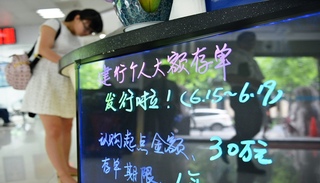 建行个人大额存单
发行啦！(6.15~6.17)
认购起点金额、30万元
存单期限、1年